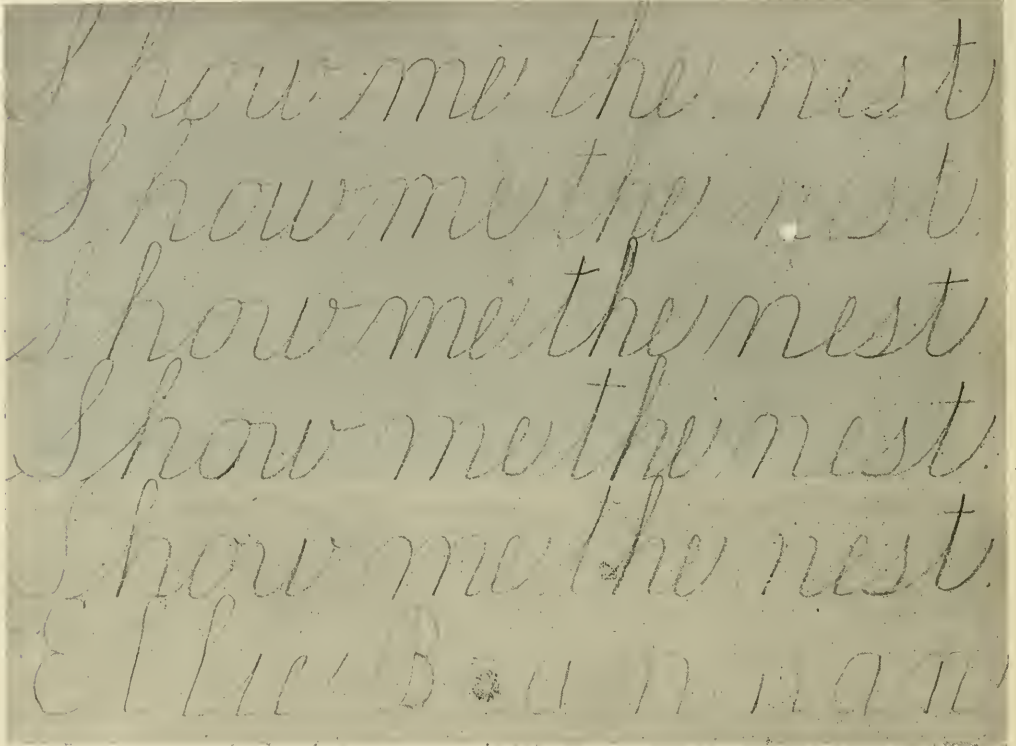 Show me the nest
Show me the nest.
Show me the nest.
Show me the nest.
Show me the nest.